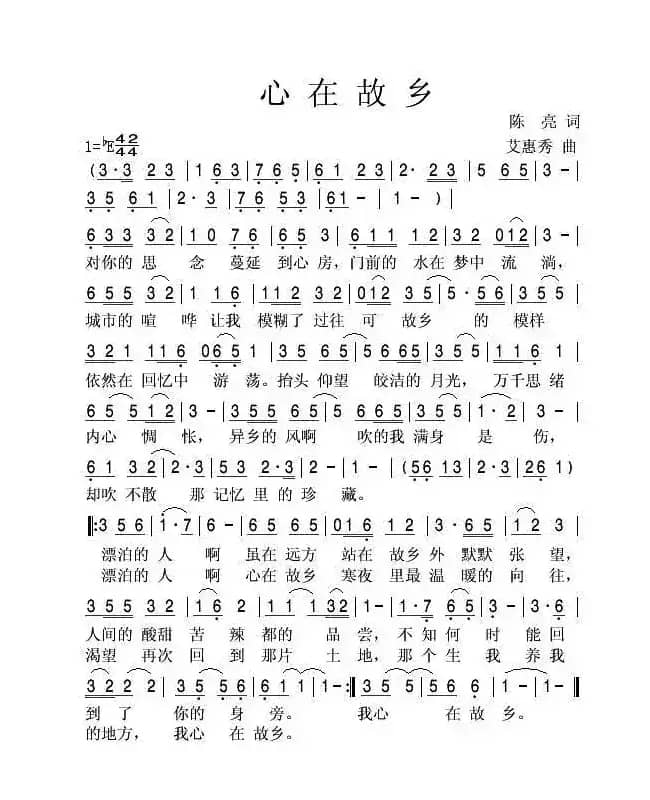 心在故乡
陈 亮 词
1=♭E 4/4 2/4 艾惠秀 曲
(3·3 2 3 | 1 6 3 | 7 6 5 | 6 1 2 3 | 2· 2 3 | 5 6 5 | 3 - |
3 5 6 1 | 2· 3 | 7 6 5 3 | 6 1 - | 1 - ) |
6 3 3 3 2 | 1 0 7 6 | 6 5 3 | 6 1 1 1 2 | 3 2 0 1 2 | 3 - |
对你的 思 念 蔓延 到心 房，门前的 水在 梦中 流 淌，
6 5 5 3 2 | 1 1 6 | 1 1 2 3 2 | 0 1 2 3 5 | 5· 5 6 | 3 5 5 |
城市的 喧 哗 让我 模糊了 过往 可 故乡 的 模样
3 2 1 1 1 6 | 0 6 5 1 | 3 5 6 5 | 5 6 6 5 | 3 5 5 | 1 1 6 1 |
依然在 回忆中 游 荡。抬头 仰望 皎洁的 月光， 万千思 绪
6 5 5 1 2 | 3 - | 3 5 5 6 5 | 6 6 5 3 5 | 1· 2 | 3 - |
内心 惆 怅， 异乡的 风啊 吹的我 满身 是 伤，
6 1 3 2 | 2· 3 | 5 3 2· 3 | 2· 1 | 1 - | (5 6 1 3 | 2· 3 | 2 6 1 )
却吹 不散 那 记忆 里 的 珍 藏。
‖: 3 5 6 | 1· 7 | 6 - | 6 5 6 5 | 0 1 6 1 2 | 3· 6 5 | 1 2 3 |
漂泊的 人 啊 虽在 远方 站在 故乡 外 默默 张 望，
漂泊的 人 啊 心在 故乡 寒夜 里最 温 暖的 向 往，
3 5 5 3 2 | 1 6 2 | 1 1 1 3 2 | 1 - | 1· 7 6 5 | 3· 6 |
人间的 酸甜 苦 辣 都的 品 尝，不 知 何 时 能回
渴望 再次 回 到 那片 土 地，那 个 生 我 养我
3 2 2 2 | 3 5 5 6 | 6 1 1 | 1 - :‖ 3 5 5 | 5 6 6 | 1 - | 1 - ‖
到 了 你的 身 旁。 我心 在 故 乡。
的地方， 我心 在 故乡。